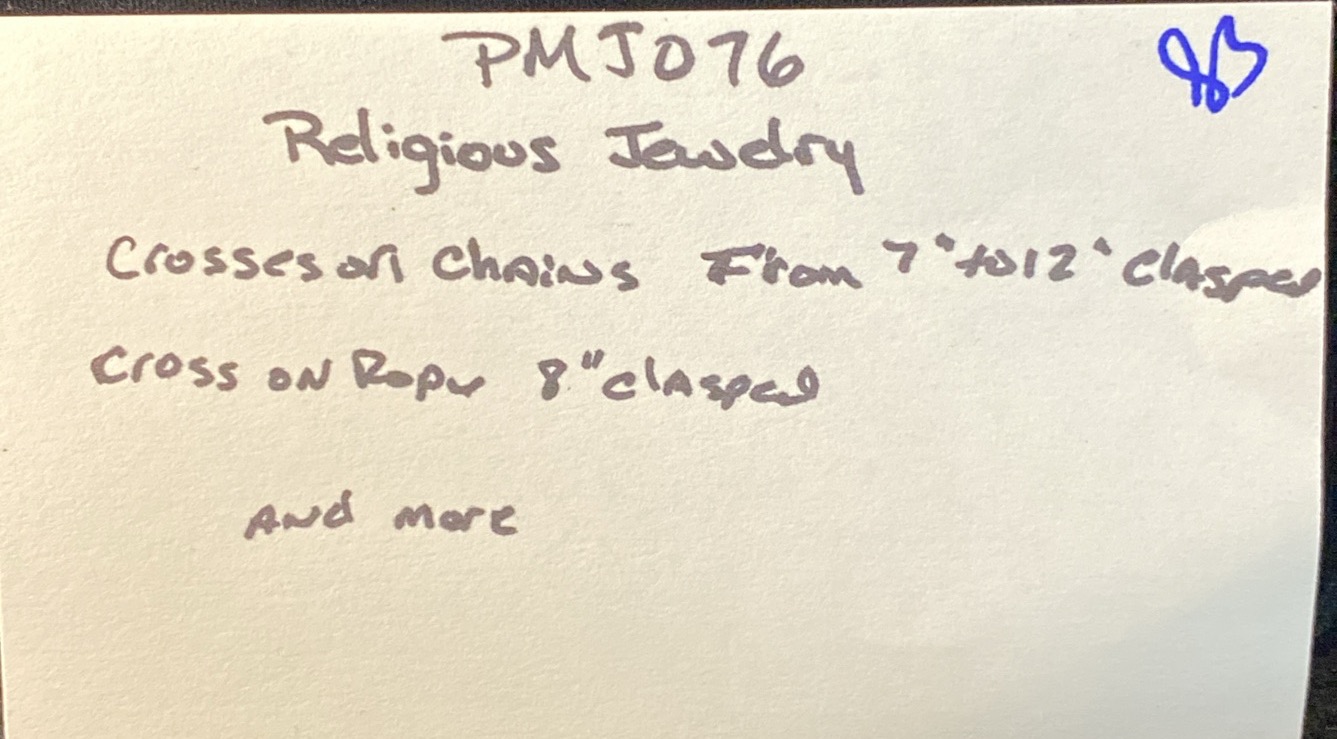 PMJ076
Religious Jewelry
Crosses on Chains From 7" to 12" clasped
Cross on Rope 8" clasped
And more